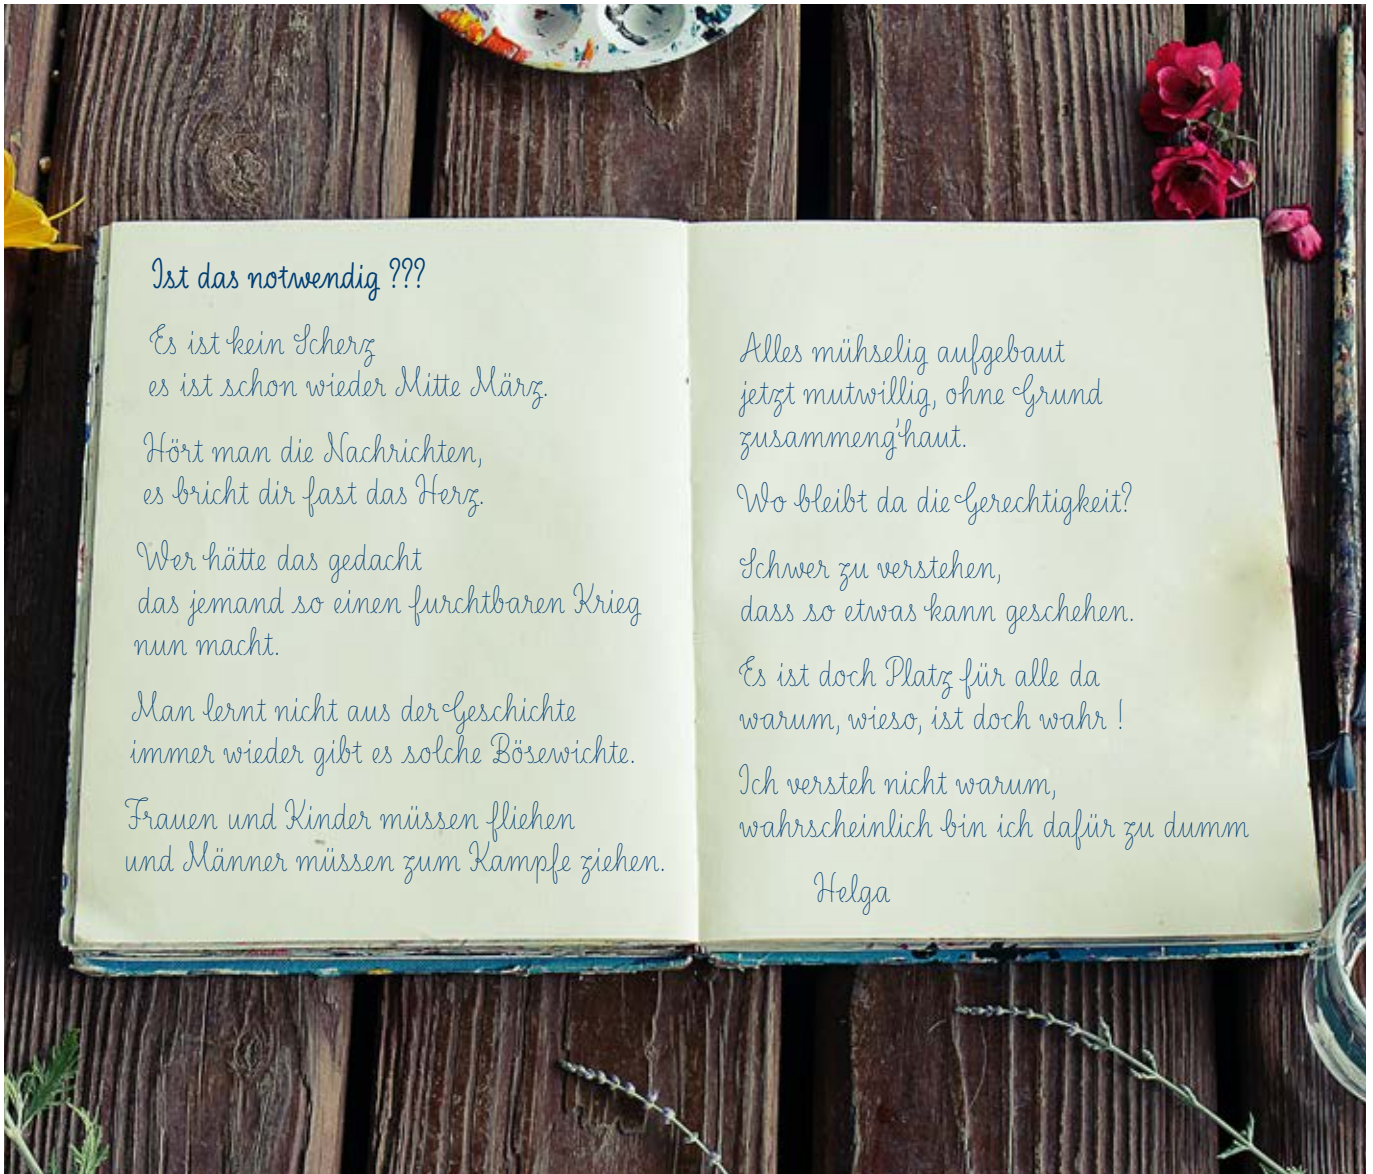 Ist das notwendig ???
Es ist kein Scherz
es ist schon wieder Mitte März.
Hört man die Nachrichten,
es bricht dir fast das Herz.
Wer hätte das gedacht
das jemand so einen furchtbaren Krieg
nun macht.
Man lernt nicht aus der Geschichte
immer wieder gibt es solche Bösewichte.
Frauen und Kinder müssen fliehen
und Männer müssen zum Kampfe ziehen.
Alles mühselig aufgebaut
jetzt mutwillig, ohne Grund
zusammeng'haut.
Wo bleibt da die Gerechtigkeit?
Schwer zu verstehen,
dass so etwas kann geschehen.
Es ist doch Platz für alle da
warum, wieso, ist doch wahr !
Ich versteh nicht warum,
wahrscheinlich bin ich dafür zu dumm
Helga